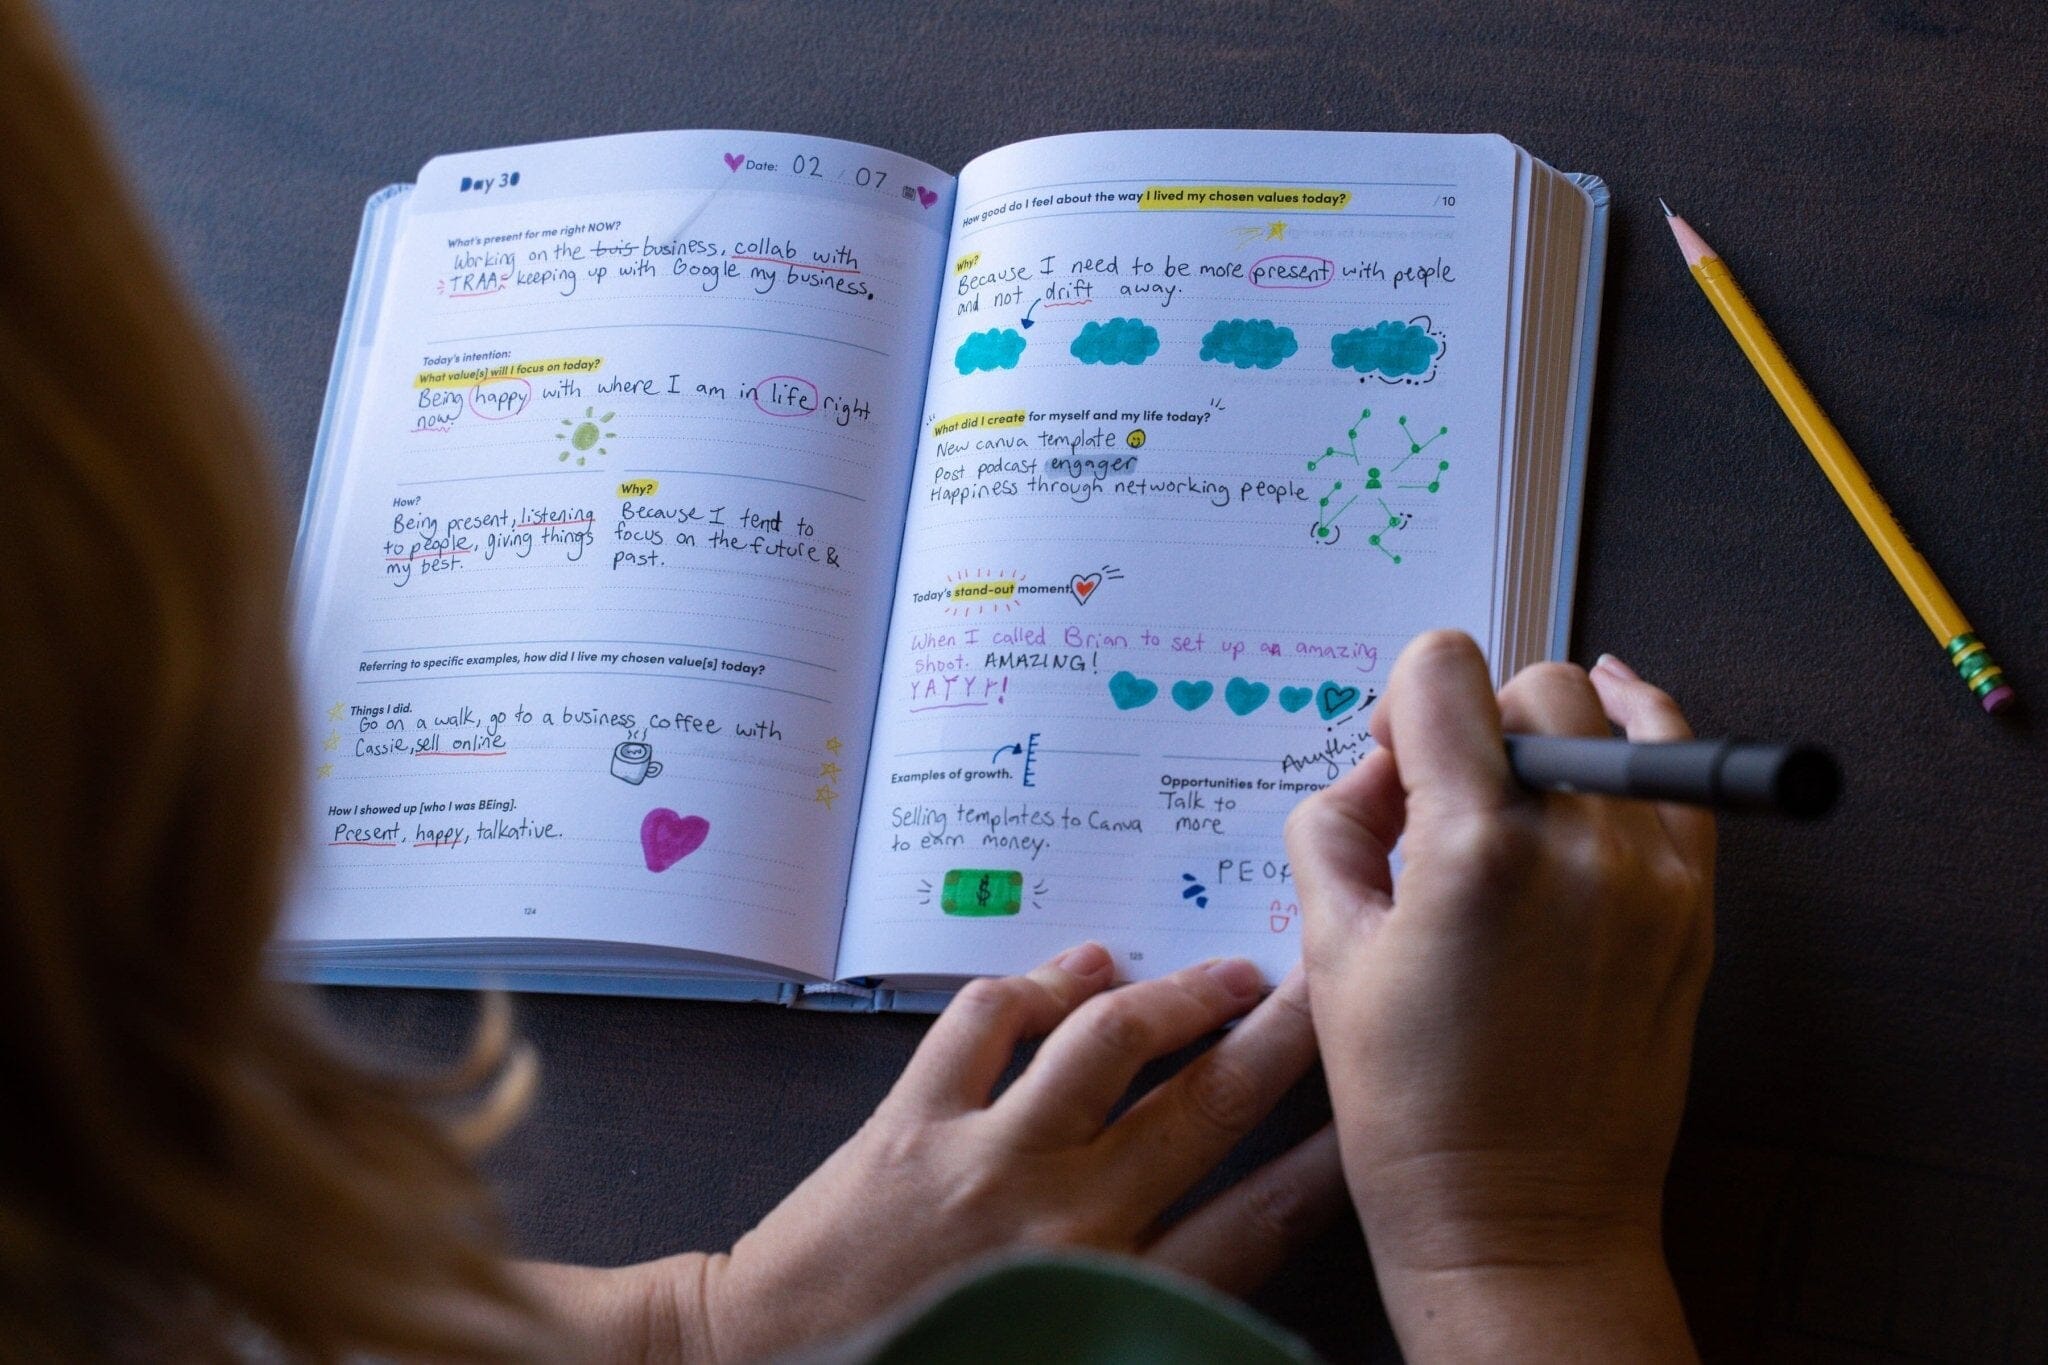 Day 30
Date: 02 / 07
What's present for me right NOW?
Working on the buis business, collab with
TRAA, keeping up with Google my business.
Today's intention:
What value[s] will I focus on today?
Being happy with where I am in life right
now.
How?
Being present, listening
to people, giving things
my best.
Why?
Because I tend to
focus on the future &
past.
Referring to specific examples, how did I live my chosen value[s] today?
Things I did.
Go on a walk, go to a business coffee with
Cassie, sell online
How I showed up [who I was BEing].
Present, happy, talkative.
124
How good do I feel about the way I lived my chosen values today?
/10
Why?
Because I need to be more present with people
and not drift away.
What did I create for myself and my life today?
New canva template
Post podcast engager
Happiness through networking people
Today's stand-out moment.
When I called Brian to set up an amazing
shoot. AMAZING!
YAYYY!
Examples of growth.
Selling templates to Canva
to earn money.
$
Anythin
Opportunities for improv
Talk to
more
PEOP
125